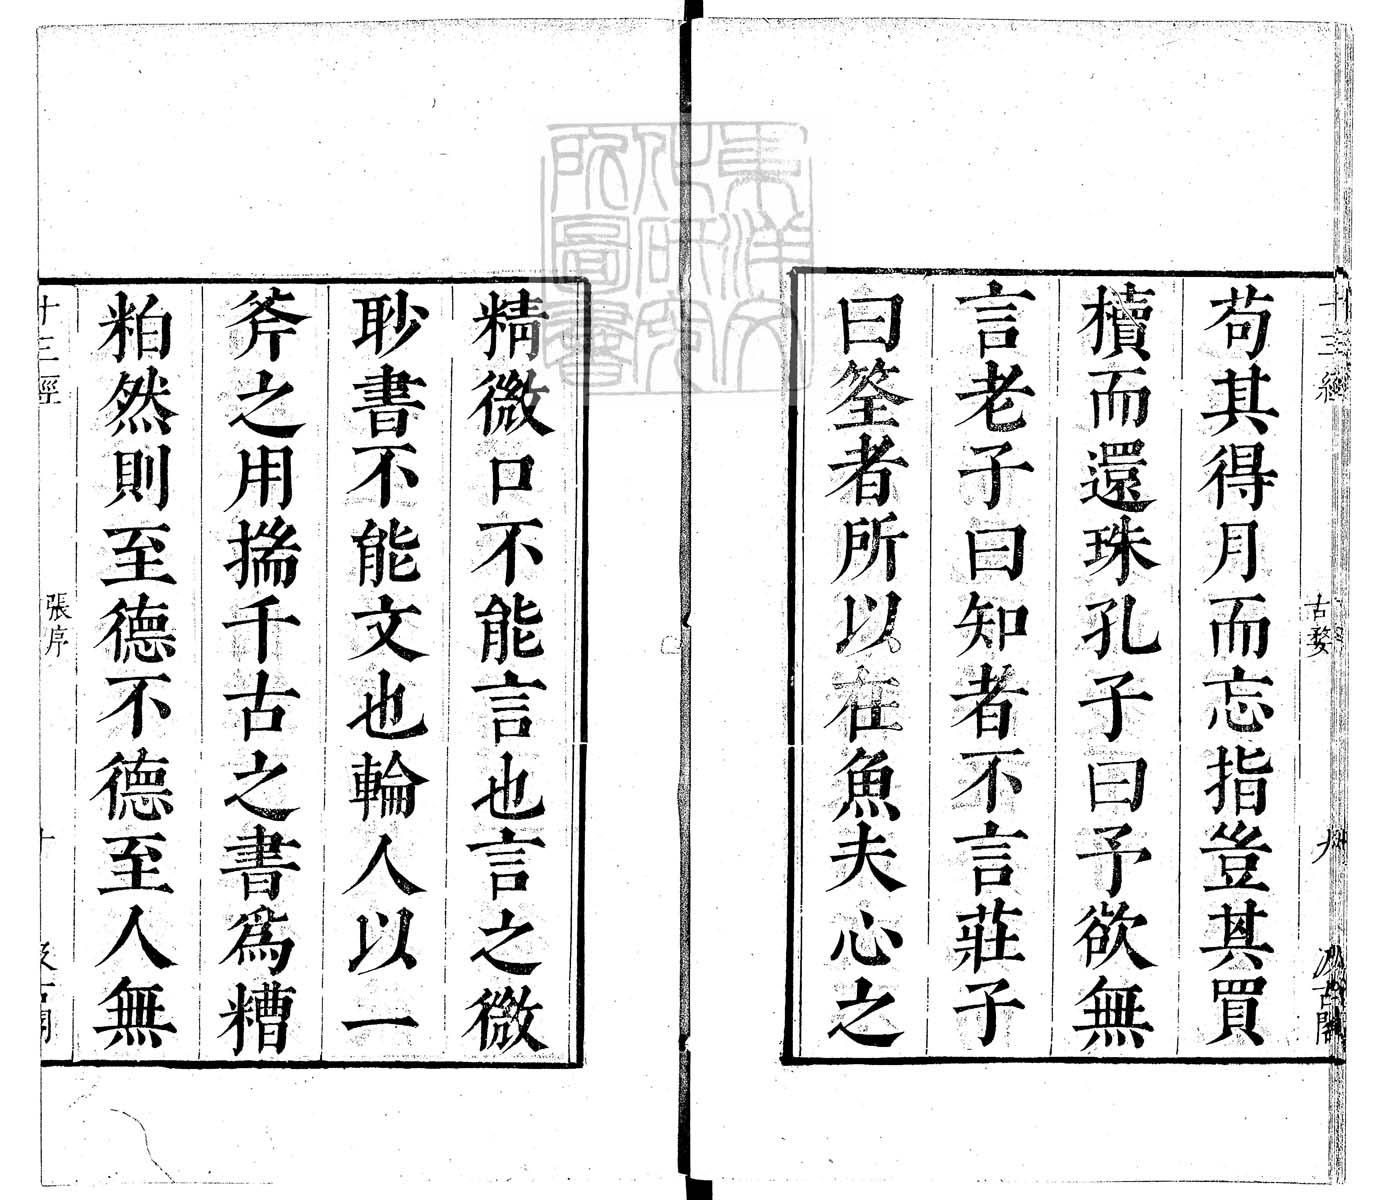 十三經
古婺
九
苟其得月而忘指豈其買
櫝而還珠孔子曰予欲無
言老子曰知者不言莊子
曰筌者所以在魚夫心之
東洋文
化研究
所圖書
精微口不能言也言之微
眇書不能文也輪人以一
斧之用揣千古之書爲糟
粕然則至德不德至人無
十三經
張序
十
汲古閣